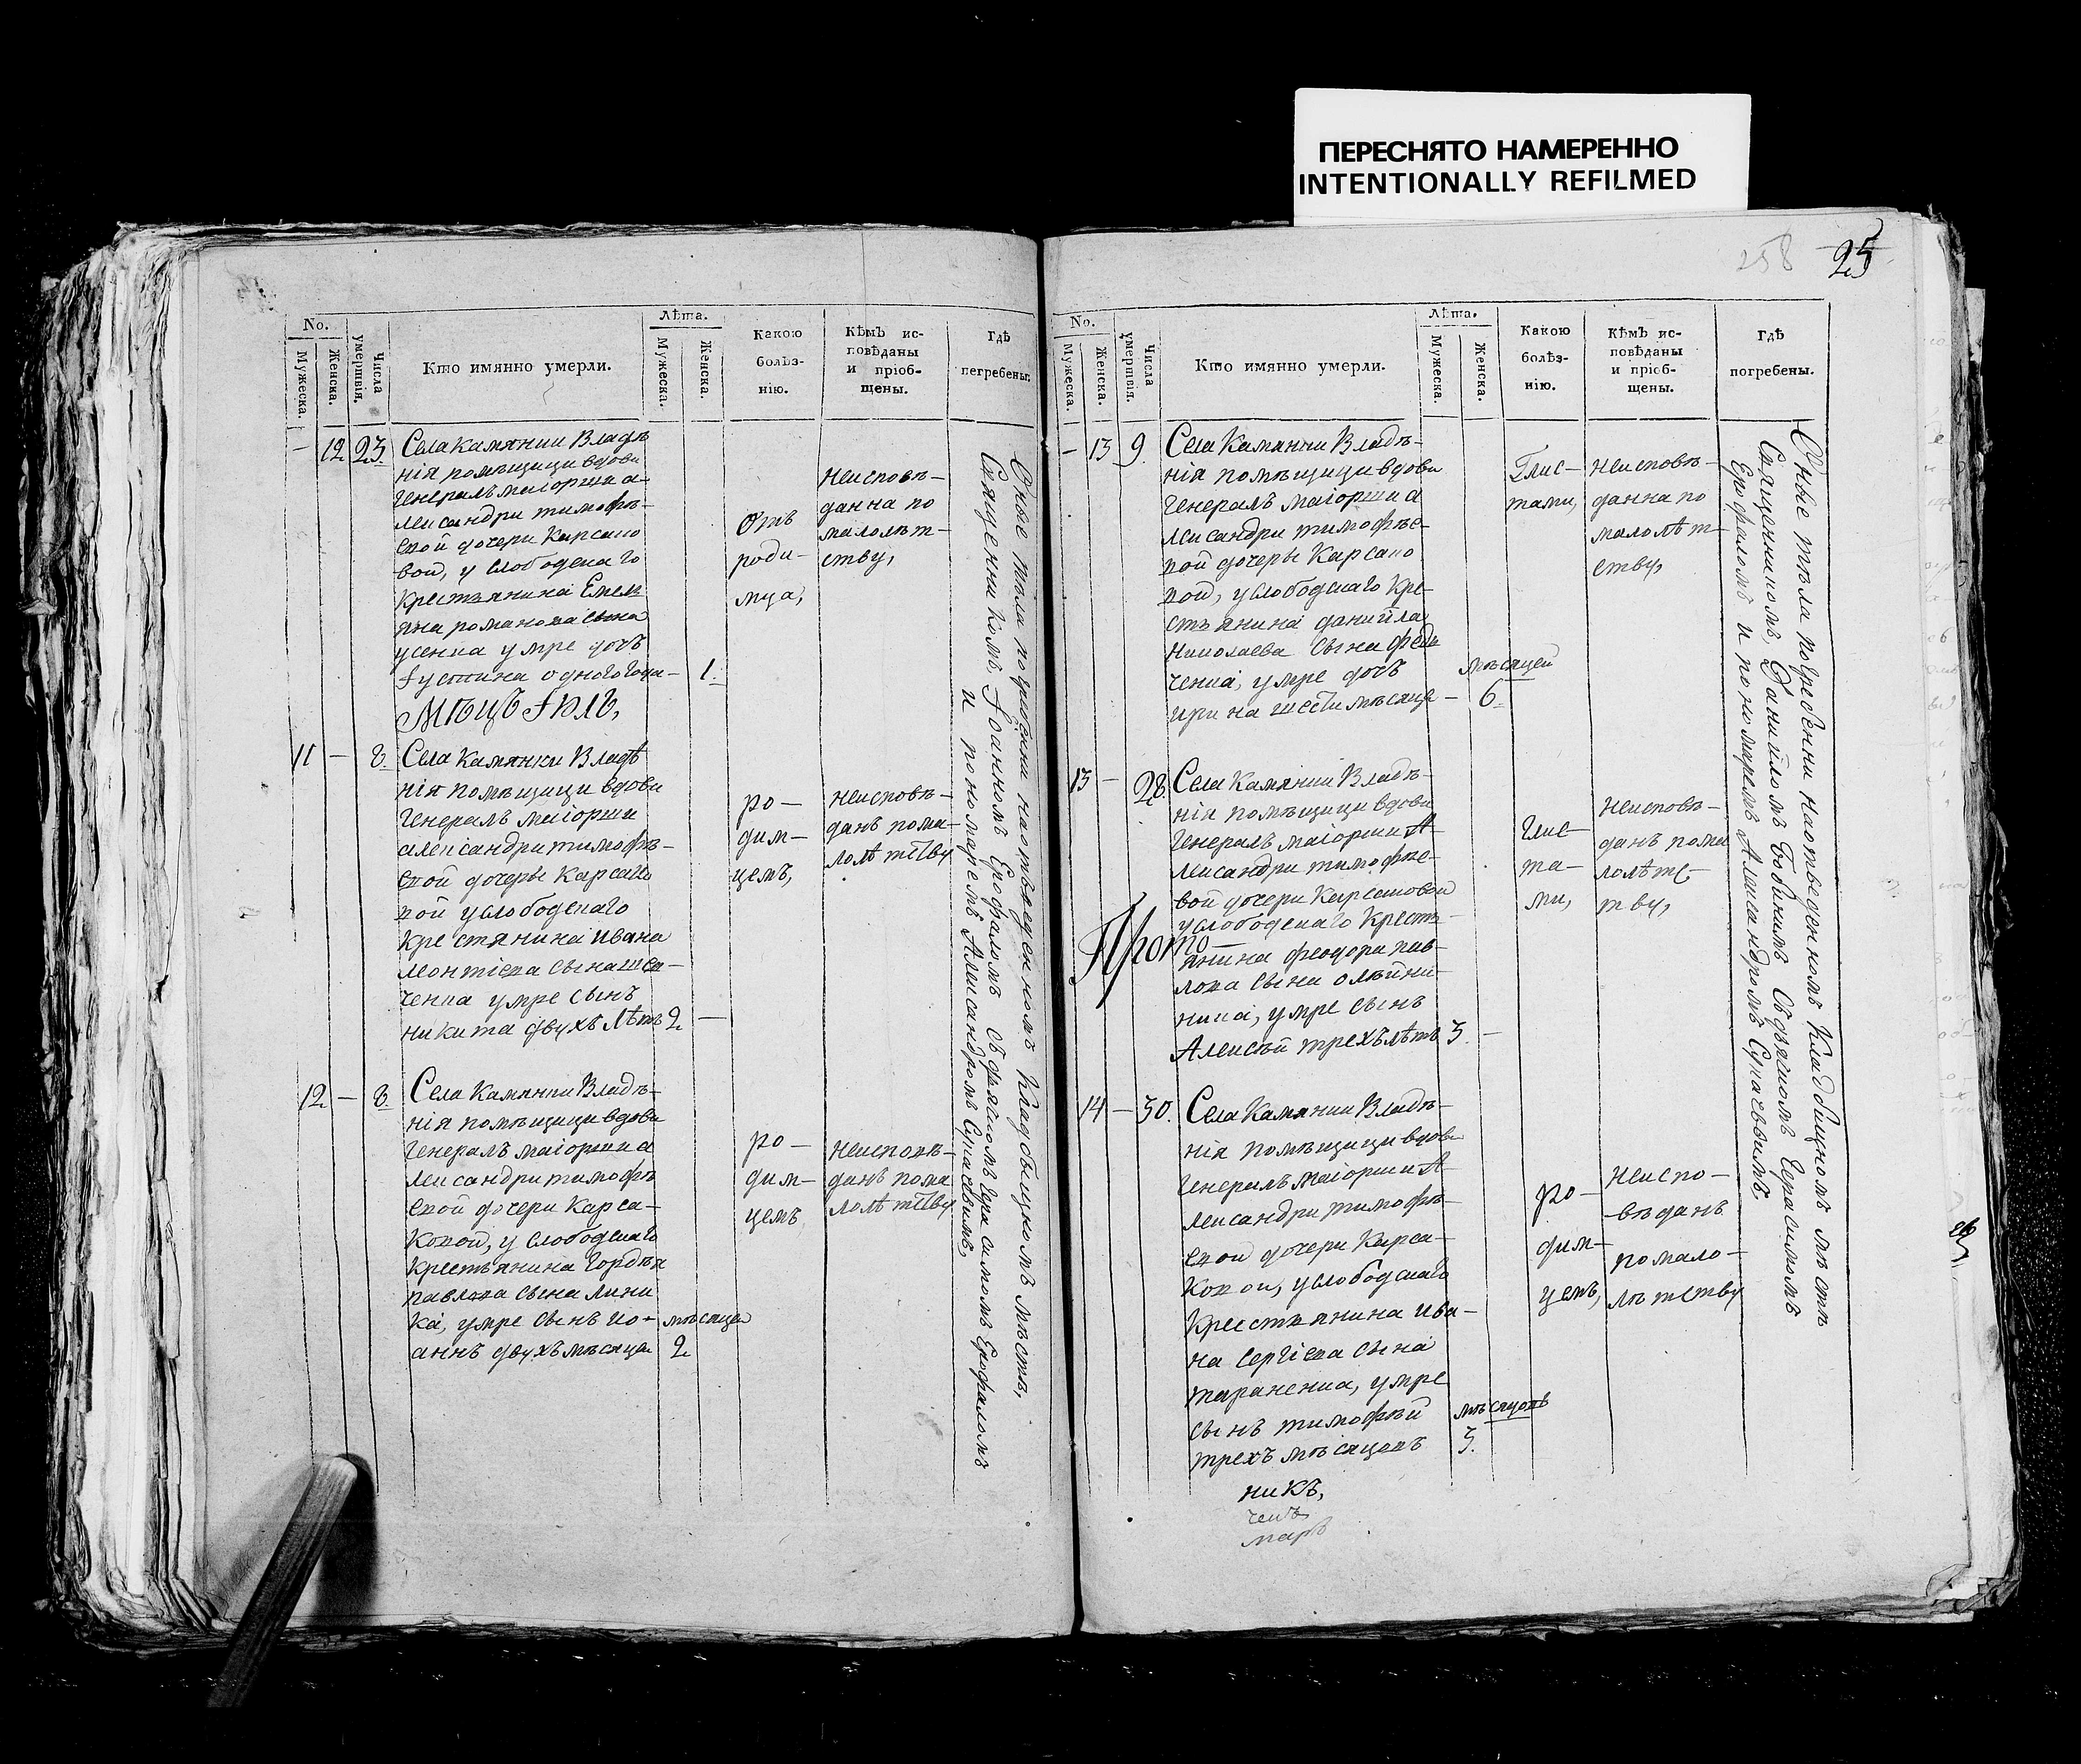 ПЕРЕСНЯТО НАМЕРЕННО
INTENTIONALLY REFILMED
258
25
No.
Мужеска.
Женска.
Числа умершвія.
Кто имянно умерли.
Лѣта.
Мужеска.
Женска.
Какою болѣз-
нію.
Кѣмъ ис-
повѣданы
и пріоб-
щены.
Гдѣ
погребены.
— 12 23.
Села Камянки Владѣ
нія помѣщици вдови
Генералъ маіорши а-
лександри тимофѣ-
евой дочери Карсако
вой, у слободскаго
Крестьянина Емель
яна романова сына
усенка умре дочь
Іустина одного года — 1.
Отъ
роди-
мца,
неисповѣ-
данна по
малолѣт-
ству,
МѢЦЪ ІЮЛЬ,
11 — 8.
Села Камянки Владѣ
нія помѣщици вдови
Генералъ маіорши
александри тимофѣ-
евой дочеры Карсако
вой у слободскаго
Крестянина Ивана
леонтіева сына шев-
ченка умре сынъ
никита двухъ лѣтъ 2 —
ро-
дим-
цемъ,
неисповѣ-
данъ пома-
лолѣтству
12 — 8.
Села Камянки Владѣ-
нія помѣщици вдови
Генералъ маіорши а
лександри тимофѣ
евой дочери Карса-
ковой, у слободскаго
Крестьянина Гордѣя
павлова сына лини
ка, умре сынъ Іо-
аннъ двухъ мѣсяцей
мѣсяцей
2
ро-
дим-
цемъ
неисповѣ-
данъ пома
лолѣтству
Оные тѣла погребени на отведенномъ кладбищномъ мѣстѣ,
Священникомъ, Іоанномъ Ерофаломъ съ дякомъ Герасимомъ Ерофаломъ
и пономаремъ Александромъ
No.
Мужеска.
Женска.
Числа умершвія.
Кто имянно умерли.
Лѣта.
Мужеска.
Женска.
Какою
болѣз-
нію.
Кѣмъ ис-
повѣданы
и пріоб-
щены.
Гдѣ
погребены.
— 13 9.
Села Камянки Владѣ-
нія помѣщици вдови
Генералъ маіорши а
лександри тимофѣе-
вой дочеры Карсако
вой, у слободскаго Кре-
стьянина даниила
Николаева сына федь
ченка, умре дочь
ири на шести мѣсяце —
мѣсяцей
6.
Глис-
тами,
неисповѣ-
данна по
малолѣт-
ству,
13 — 28.
Села Камянки Владѣ-
нія помѣщици вдови
Генералъ маіорши А-
лександри тимофѣе-
вой дочери Карсаковой
у слободскаго Кресть-
янина феодора пав-
лова сына олѣйни-
ника, умре сынъ
Алексѣй трехъ лѣтъ 3. —
глис-
та-
ми,
неисповѣ-
данъ пома
лолѣтс-
тву,
Прото-
14 — 30.
Села Камянки Владѣ-
нія помѣщици вдови
Генералъ маіорши А-
лександри тимофѣ-
евой дочери Карса-
ковои, у слободскаго
Крестьянина Ива-
на Сергіева сына
тараненка, умре
сынъ тимофѣй
трехъ мѣсяцовъ
мѣсяцовъ
3.
ро-
дим-
цемъ,
неиспо-
вѣданъ
помало-
лѣтству
Оные тѣла погребенни на отведенномъ кладбищномъ мѣстѣ
Священникомъ, Даниіломъ съ дякомъ Герасимомъ
Ерофаломъ и пономаремъ Александромъ
никъ,